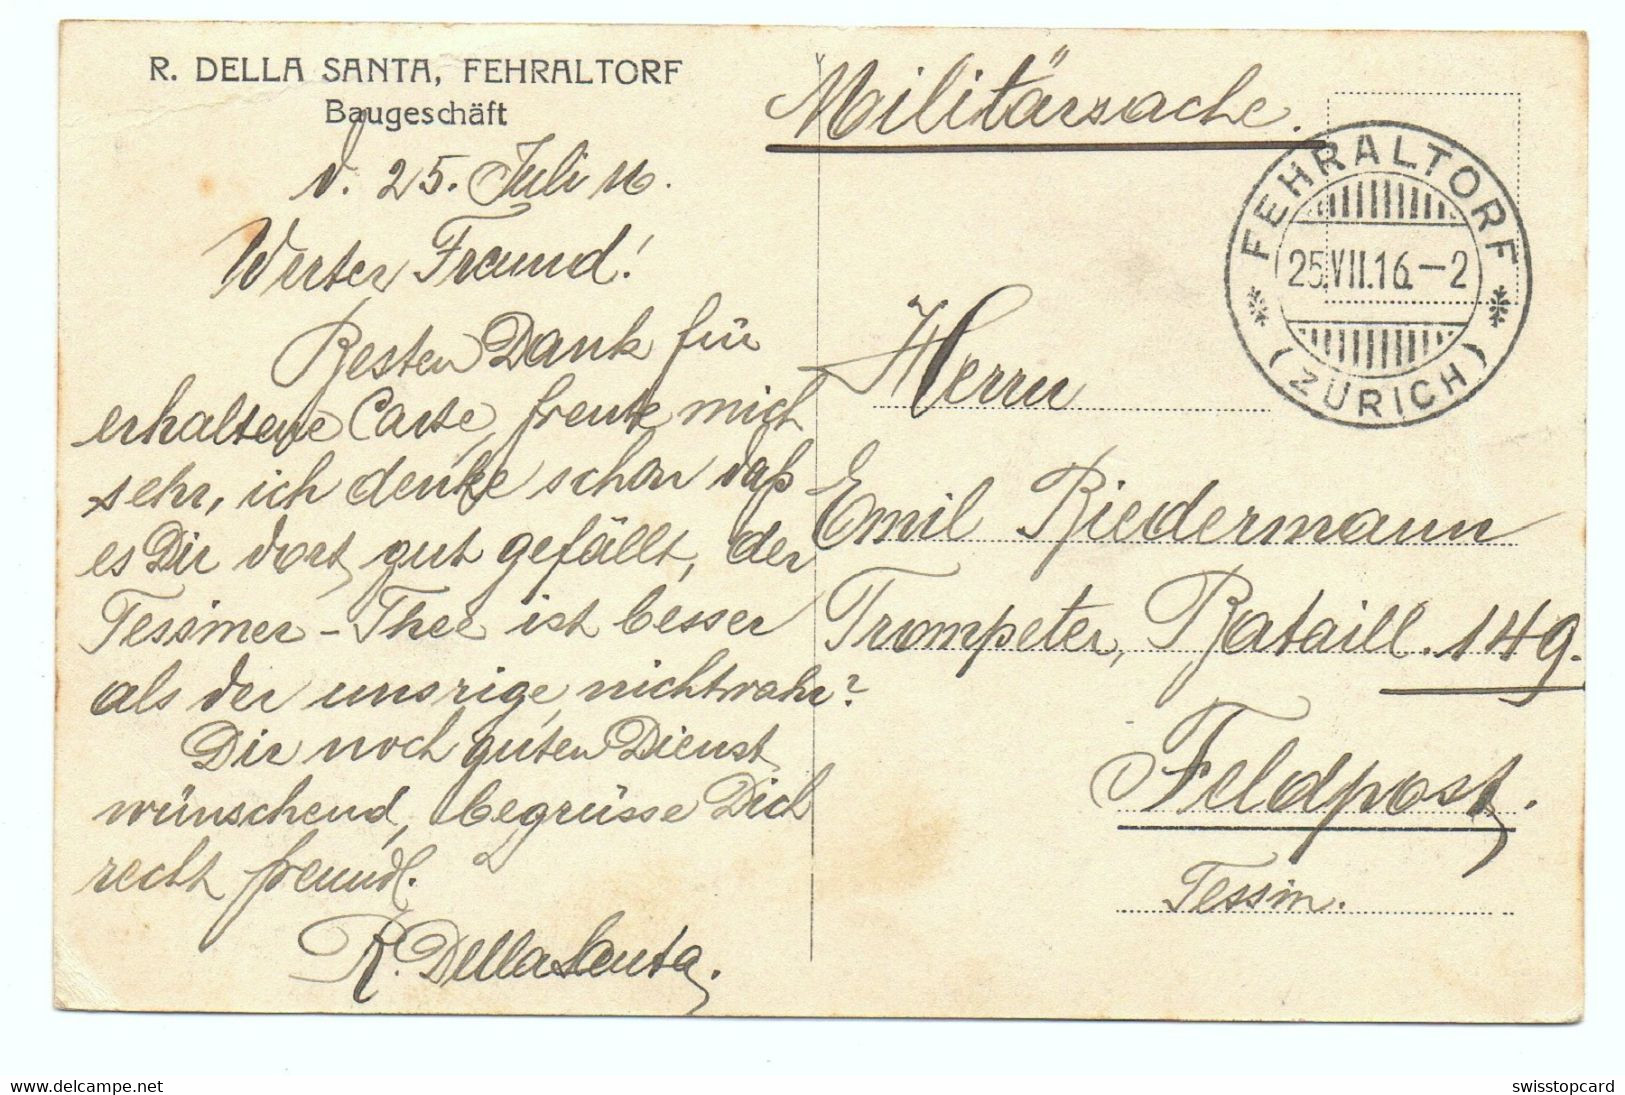 R. DELLA SANTA, FEHRALTORF
Baugeschäft
d. 25. Juli 16.
Werter Freund!
Besten Dank für
erhaltene Carte, freute mich
sehr, ich denke schon daß
es Dir dort gut gefällt, der
Tessiner-Thee ist besser
als der unsrige, nichtwahr?
Dir noch guten Dienst
wünschend, begrüsse Dich
recht freundl.
R. Della Santa.
Militärsache.
FEHRALTORF
25.VII.16.-2
(ZÜRICH)
Herrn
Emil Riedermann
Trompeter, Bataill. 149.
Feldpost.
Tessin.
For sale on delcampe.net
swisstopcard